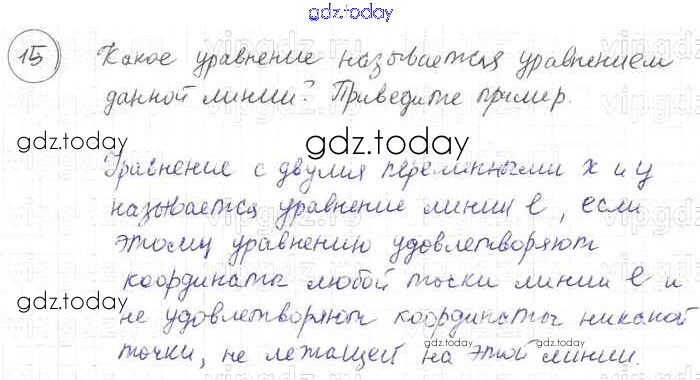 gdz.today
15) Какое уравнение называется уравнением
данной линии? Приведите пример.
gdz.today gdz.today
Уравнение с двумя переменными x и y
называется уравнение линии l, если
этому уравнению удовлетворяют
координаты любой точки линии l и
gdz.today
не удовлетворяют координаты никакой
gdz.today
точки, не лежащей на этой линии.